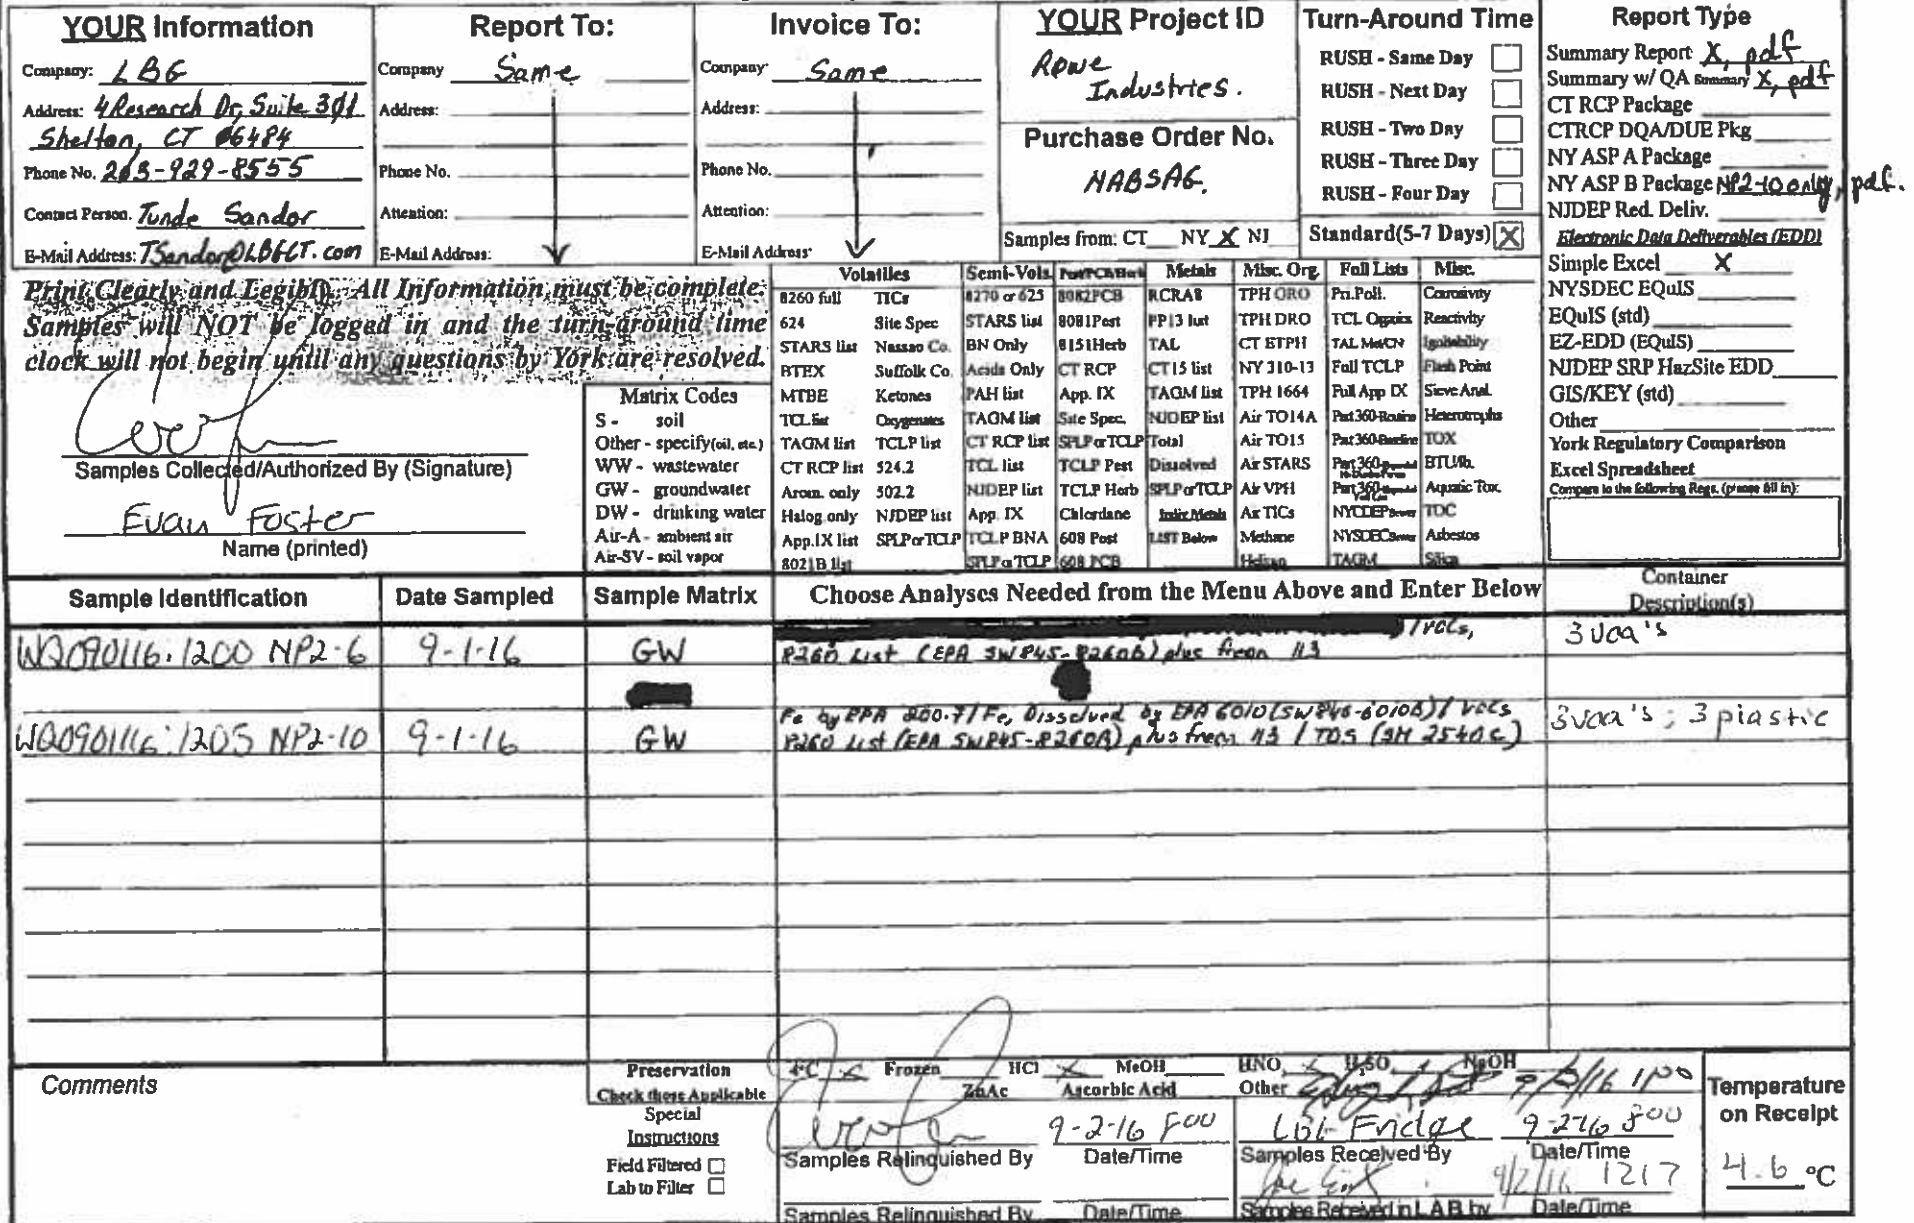 YOUR Information
Company: LBG
Address: 4 Research Dr, Suite 301
Shelton, CT 06484
Phone No. 203-929-8555
Contact Person. Tunde Sandor
E-Mail Address: TSandor@LBGCT.com
Report To:
Company Same
Address:
Phone No.
Attention:
E-Mail Address:
Invoice To:
Company Same
Address:
Phone No.
Attention:
E-Mail Address:
YOUR Project ID
Rowe
Industries.
Purchase Order No.
Samples from: CT NY X NJ
Turn-Around Time
RUSH - Same Day
RUSH - Next Day
RUSH - Two Day
RUSH - Three Day
RUSH - Four Day
Standard(5-7 Days) X
Report Type
Summary Report X, pdf
Summary w/ QA Summary X, pdf
CT RCP Package
CTRCP DQA/DUE Pkg
NY ASP A Package
NY ASP B Package NP2-10 only, pdf.
NJDEP Red. Deliv.
Electronic Data Deliverables (EDD)
Simple Excel X
NYSDEC EQuIS
EQuIS (std)
EZ-EDD (EQuIS)
NJDEP SRP HazSite EDD
GIS/KEY (std)
Other
York Regulatory Comparison
Excel Spreadsheet
Compare to the following Regs. (please fill in):
Print Clearly and Legibly. All Information must be complete.
Samples will NOT be logged in and the turn-around time
clock will not begin until any questions by York are resolved.
Samples Collected/Authorized By (Signature)
Evan Foster
Name (printed)
Matrix Codes
S - soil
Other - specify(oil, etc.)
WW - wastewater
GW - groundwater
DW - drinking water
Air-A - ambient air
Air-SV - soil vapor
Volatiles
8260 full TICs
624 Site Spec
STARS list Nassau Co.
BTEX Suffolk Co.
MTBE Ketones
TCL list Oxygenates
TAGM list TCLP list
CT RCP list 524.2
Arom. only 502.2
Halog. only NJDEP list
App.IX list SPLP or TCLP
8021B list
Semi-Vols.
8270 or 625
STARS list
BN Only
Acids Only
PAH list
TAGM list
CT RCP list
TCL list
NJDEP list
App. IX
TCLP BNA
SPLP or TCLP
Pest/PCB/Herb
8082PCB
8081Pest
8151Herb
CT RCP
App. IX
Site Spec.
SPLP or TCLP
TCLP Pest
TCLP Herb
Chlordane
608 Pest
608 PCB
Metals
RCRA8
PP13 list
TAL
CT15 list
TAGM list
NJDEP list
Total
Dissolved
SPLP or TCLP
Indiv. Metals
LIST Below
Misc. Org.
TPH GRO
TPH DRO
CT ETPH
NY 310-13
TPH 1664
Air TO14A
Air TO15
Air STARS
Air VPH
Air TICs
Methane
Helium
Full Lists
Pri.Poll.
TCL Organics
TAL MetCN
Full TCLP
Full App IX
Part 360-Routine
Part 360-Baseline
NYCDEP Sewer
NYSDEC Sewer
TAGM
Misc.
Corrosivity
Reactivity
Ignitability
Flash Point
Sieve Anal.
Heterotrophs
TOX
BTU/lb.
Aquatic Tox.
TOC
Asbestos
Silica
Sample Identification
Date Sampled
Sample Matrix
Choose Analyses Needed from the Menu Above and Enter Below
Container
Description(s)
WQ090116:1200 NP2-6 9-1-16 GW
/ VOCs,
8260 List (EPA SW845-8260B) plus freon 113
3 voa's
WQ090116:1205 NP2-10 9-1-16 GW
Fe by EPA 200.7/Fe, Dissolved by EPA 6010(SW846-6010B)/ VOCs
8260 List (EPA SW845-8260B) plus freon 113 / TDS (SM 2540C)
3voa's ; 3 plastic
Comments
Preservation
Check those Applicable
4°C x Frozen HCl x MeOH HNO3 x H2SO4 NaOH
ZnAc Ascorbic Acid Other
Special
Instructions
Field Filtered
Lab to Filter
9-2-16 800
Samples Relinquished By Date/Time
LBG Fridge 9-2-16 800
Samples Received By Date/Time
9/2/16 1217
Samples Relinquished By Date/Time
Samples Received in LAB by Date/Time
Temperature
on Receipt
4.6 °C